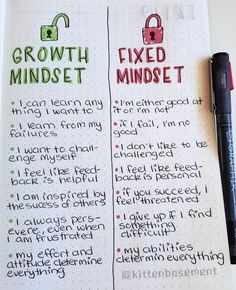 GROWTH
MINDSET
I can learn any
thing I want to
I learn from my
failures
I want to chall-
enge myself
I feel like feed-
back is helpful
I am inspired by
the sucess of others
I always pers-
evere, even when
I am frustrated
my effort and
attitude determine
everything
FIXED
MINDSET
I'm either good at
it or i'm not
if I fail, I'm no
good
I don't like to be
challenged
I feel like feed-
back is personal
if you succeed, I
feel threatened
I give up if I find
something
difficult
my abilities
determin everything
@kittenbasement